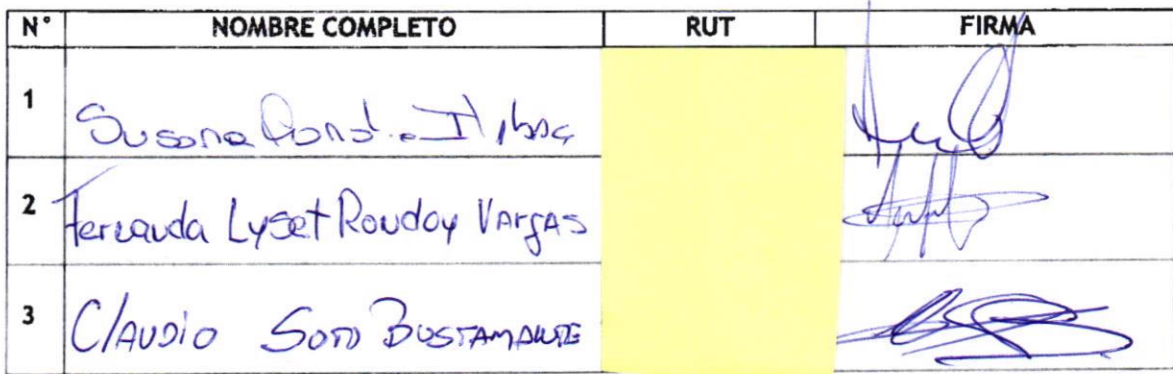 N° NOMBRE COMPLETO RUT FIRMA
1 Susana
2 Fernanda Lyset Rondoy Vargas
3 Claudio Soto Bustamante